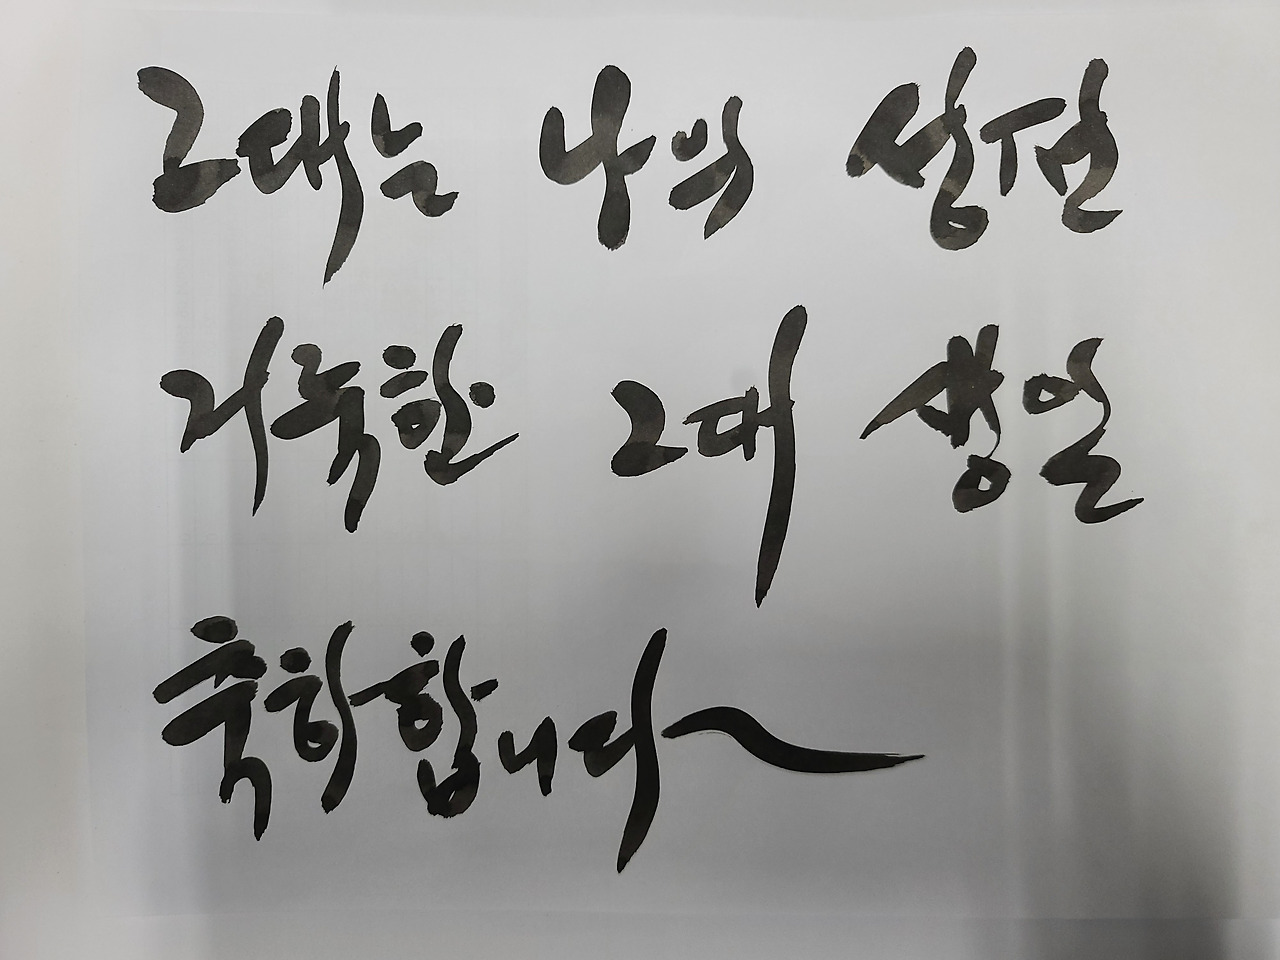 그대는 나의 성전
거룩한 그대 생일
축하합니다~